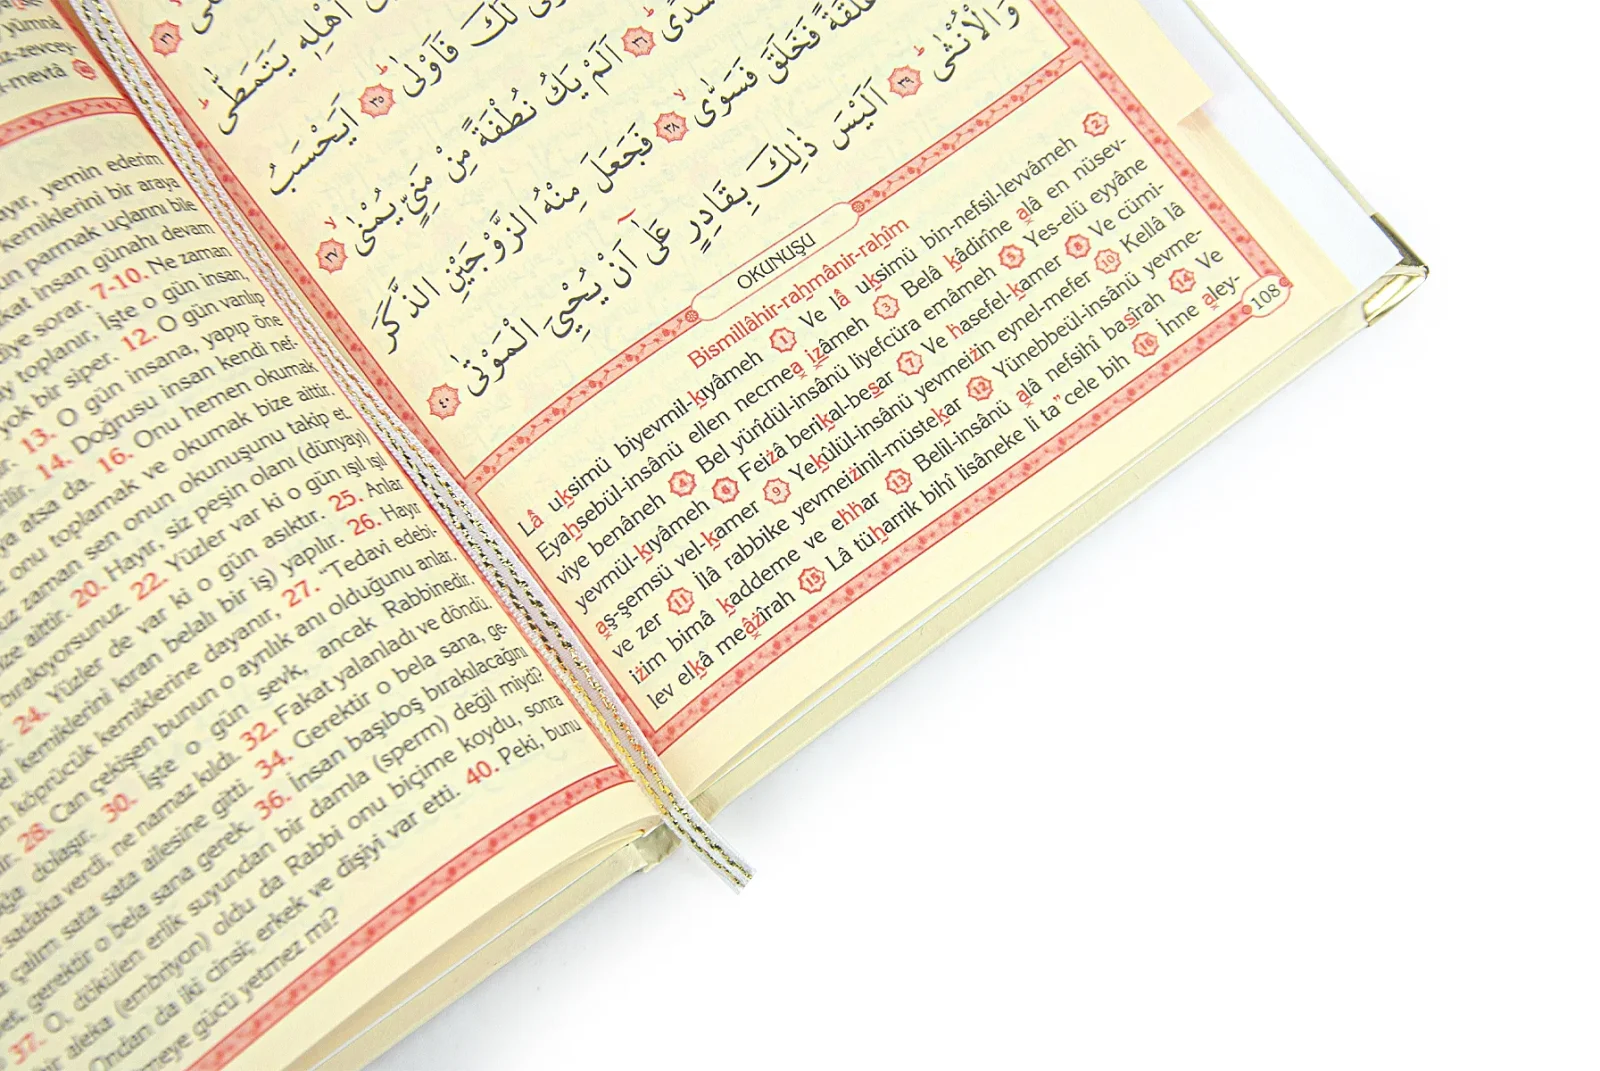 yümnâ
iz-zevcey-
-mevtâ
yemin ederim
kemiklerini bir araya
parmak uçlarını bile
insan günahı devam
diye sorar. 7-10. Ne zaman
toplanır, İşte o gün insan,
yok bir siper. 12. O gün varılıp
13. O gün insana, yapıp öne
14. Doğrusu insan kendi nef-
atsa da. 16. Onu hemen okumak
onu toplamak ve okumak bize aittir.
zaman sen onun okunuşunu takip et.
aittir. 20. Hayır, siz peşin olanı (dünyayı)
bırakıyorsunuz. 22. Yüzler var ki o gün ışıl ışıl
24. Yüzler de var ki o gün asıktır. 25. Anlar
kemiklerini kıran belalı bir iş) yapılır. 26. Hayır
köprücük kemiklerine dayanır, 27. "Tedavi edebi-
28. Can çekişen bunun o ayrılık anı olduğunu anlar.
dolaşır. 30. İşte o gün sevk, ancak Rabbinedir.
sadaka verdi, ne namaz kıldı. 32. Fakat yalanladı ve döndü.
çalım sata sata ailesine gitti. 34. Gerektir o bela sana, ge-
gerektir o bela sana gerek. 36. İnsan başıboş bırakılacağını
37. O, dökülen erlik suyundan bir damla (sperm) değil miydi?
bir aleka (embriyon) oldu da Rabbi onu biçime koydu, sonra
Ondan da iki cinsi; erkek ve dişiyi var etti. 40. Peki, bunu
gücü yetmez mi?
اَهْلِهٖ يَتَمَطّٰىۜ
لَكَ فَاَوْلٰىۜ ﴿٣٥﴾ اَيَحْسَبُ
سُدًىۜ ﴿٣٦﴾ اَلَمْ يَكُ نُطْفَةً مِنْ مَنِيٍّ يُمْنٰىۙ ﴿٣٧﴾
عَلَقَةً فَخَلَقَ فَسَوّٰىۙ ﴿٣٨﴾ فَجَعَلَ مِنْهُ الزَّوْجَيْنِ الذَّكَرَ
وَالْاُنْثٰىۜ ﴿٣٩﴾ اَلَيْسَ ذٰلِكَ بِقَادِرٍ عَلٰٓى اَنْ يُحْيِيَ الْمَوْتٰى ﴿٤٠﴾
OKUNUŞU
Bismillâhir-rahmânir-rahîm
Lâ uksimü biyevmil-kıyâmeh 1 Ve lâ uksimü bin-nefsil-levvâmeh 2
Eyahsebül-insânü ellen necmea izâmeh 3 Belâ kâdirîne alâ en nüsev-
viye benâneh 4 Bel yürîdül-insânü liyefcüra emâmeh 5 Yes-elü eyyâne
yevmül-kıyâmeh 6 Feizâ berikal-besar 7 Ve hasefel-kamer 8 Ve cümi-
aş-şemsü vel-kamer 9 Yekûlül-insânü yevmeizin eynel-mefer 10 Kellâ lâ
ve zer 11 İlâ rabbike yevmeizinil-müstekar 12 Yünebbeül-insânü yevme-
izim bimâ kaddeme ve ehhar 13 Belil-insânü alâ nefsihî basîrah 14 Ve
lev elkâ meâzîrah 15 Lâ tüharrik bihî lisâneke li ta"cele bih 16 İnne aley-
108